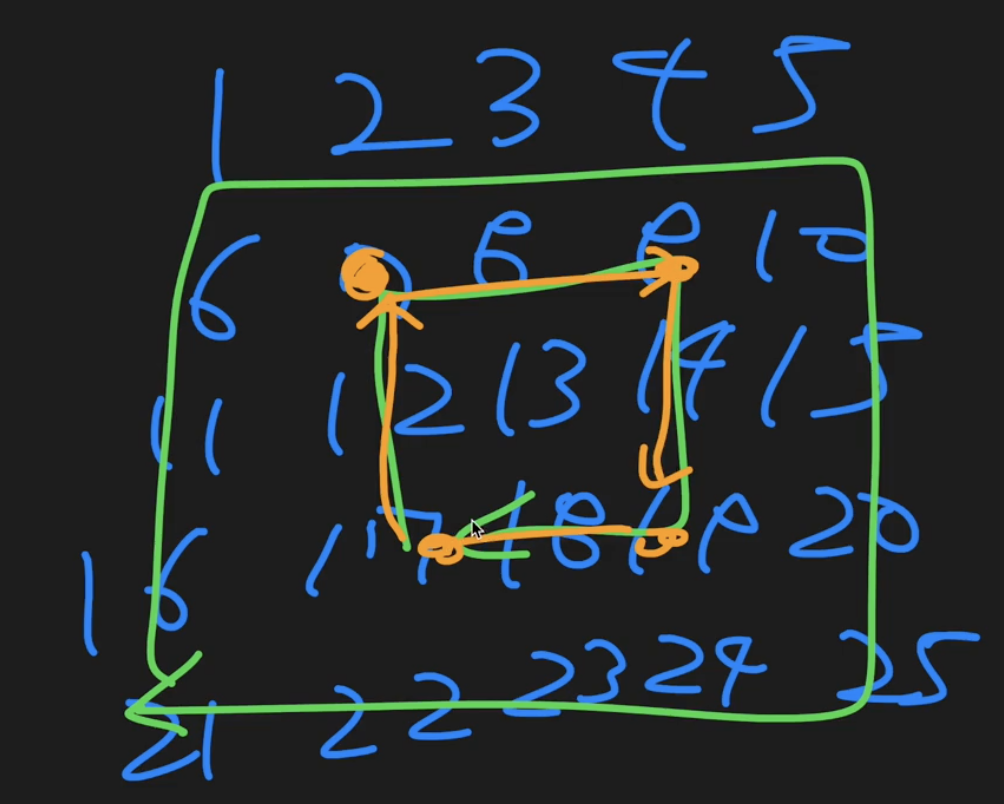 1 2 3 4 5
6 8 9 10
11 12 13 14 15
16 17 18 19 20
21 22 23 24 25